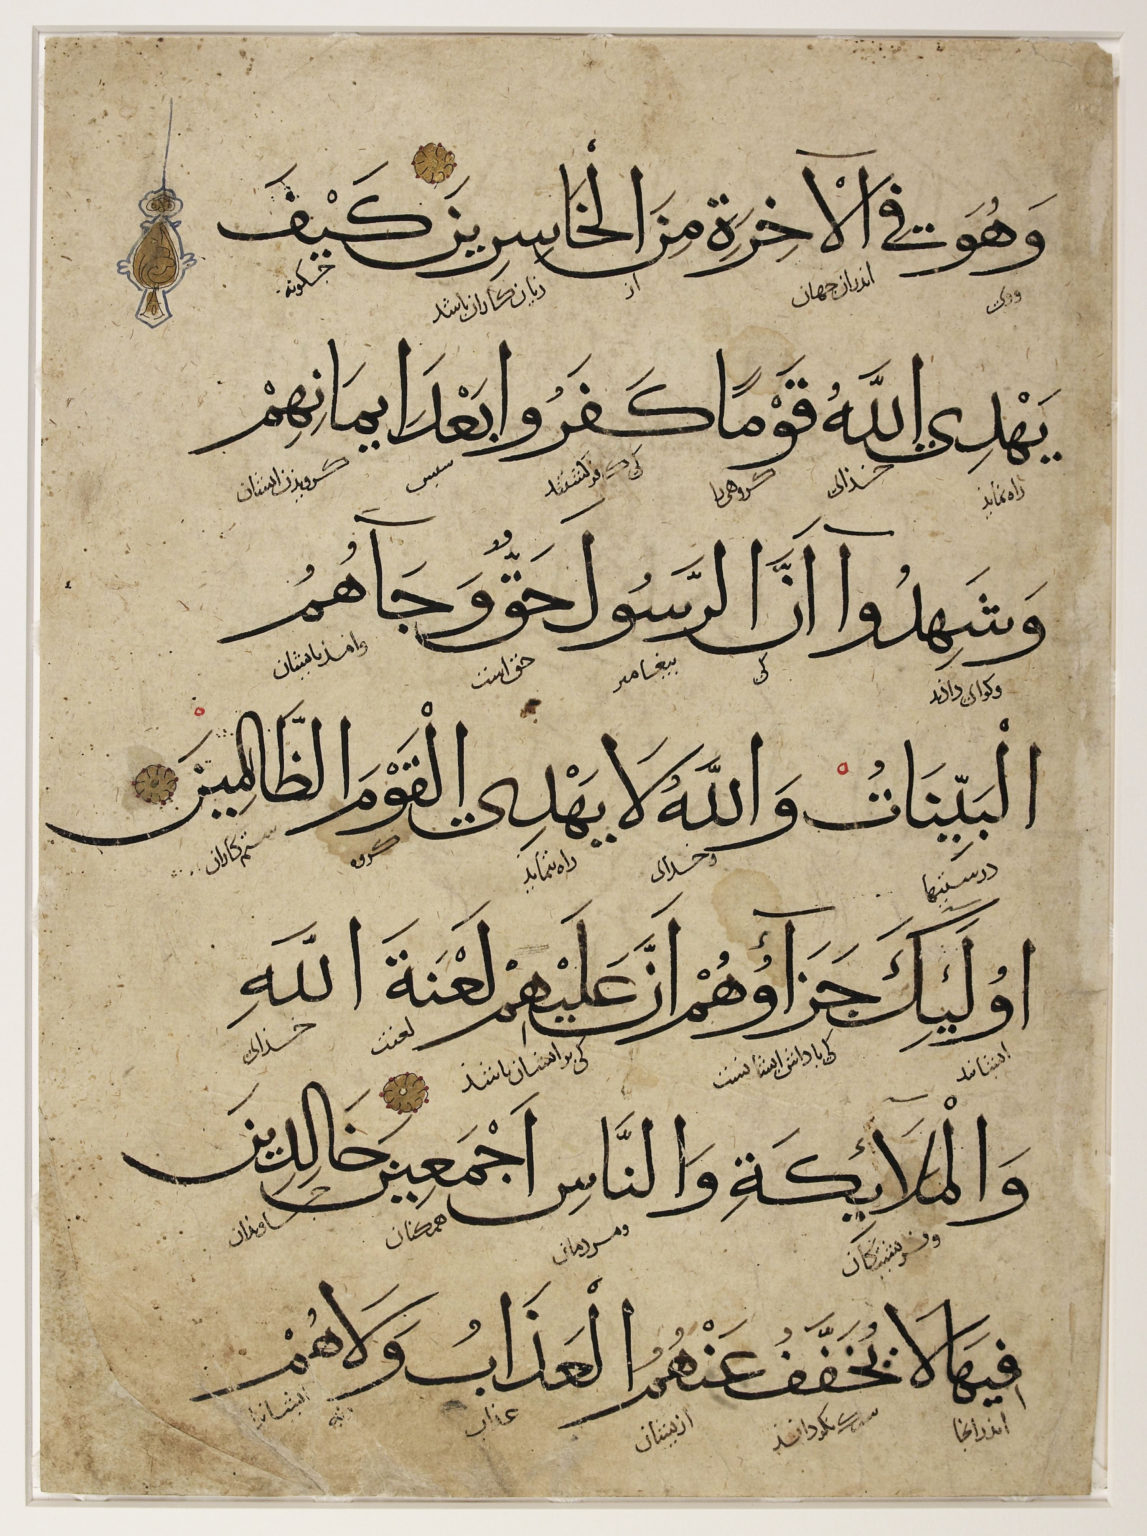 وَهُوَ فِي الْآخِرَةِ مِنَ الْخَاسِرِينَ كَيْفَ
وى اندران جهان از زیان کاران باشد چکونه
يَهْدِي اللَّهُ قَوْمًا كَفَرُوا بَعْدَ اِيمَانِهِمْ
راه نماید خدای کروهی را کی کافر کشتند سپس کرویدن ایشان
وَشَهِدُوآ اَنَّ الرَّسُولَ حَقٌّ وَجَآهُمُ
وکوای دادند کی پیغامبر حق است وامذ بایشان
الْبَيِّنَاتُ وَاللَّهُ لَا يَهْدِي الْقَوْمَ الظَّالِمِينَ
وخدای راه ننماید کروه ستم کاران
اُولَئِكَ جَزَآؤُهُمْ اَنَّ عَلَيْهِمْ لَعْنَةَ اللَّهِ
ایشانند کی پاداش ایشانست کی بر ایشان باشد لعنت خدای
وَالْمَلَآئِكَةِ وَالنَّاسِ اَجْمَعِينَ خَالِدِينَ
وفریشتکان ومردمان همکنان جاویذان
فِيهَا لَا يُخَفَّفُ عَنْهُمُ الْعَذَابُ وَلَا هُمْ
اندرانجا ازیشان عذاب ونه ایشانرا